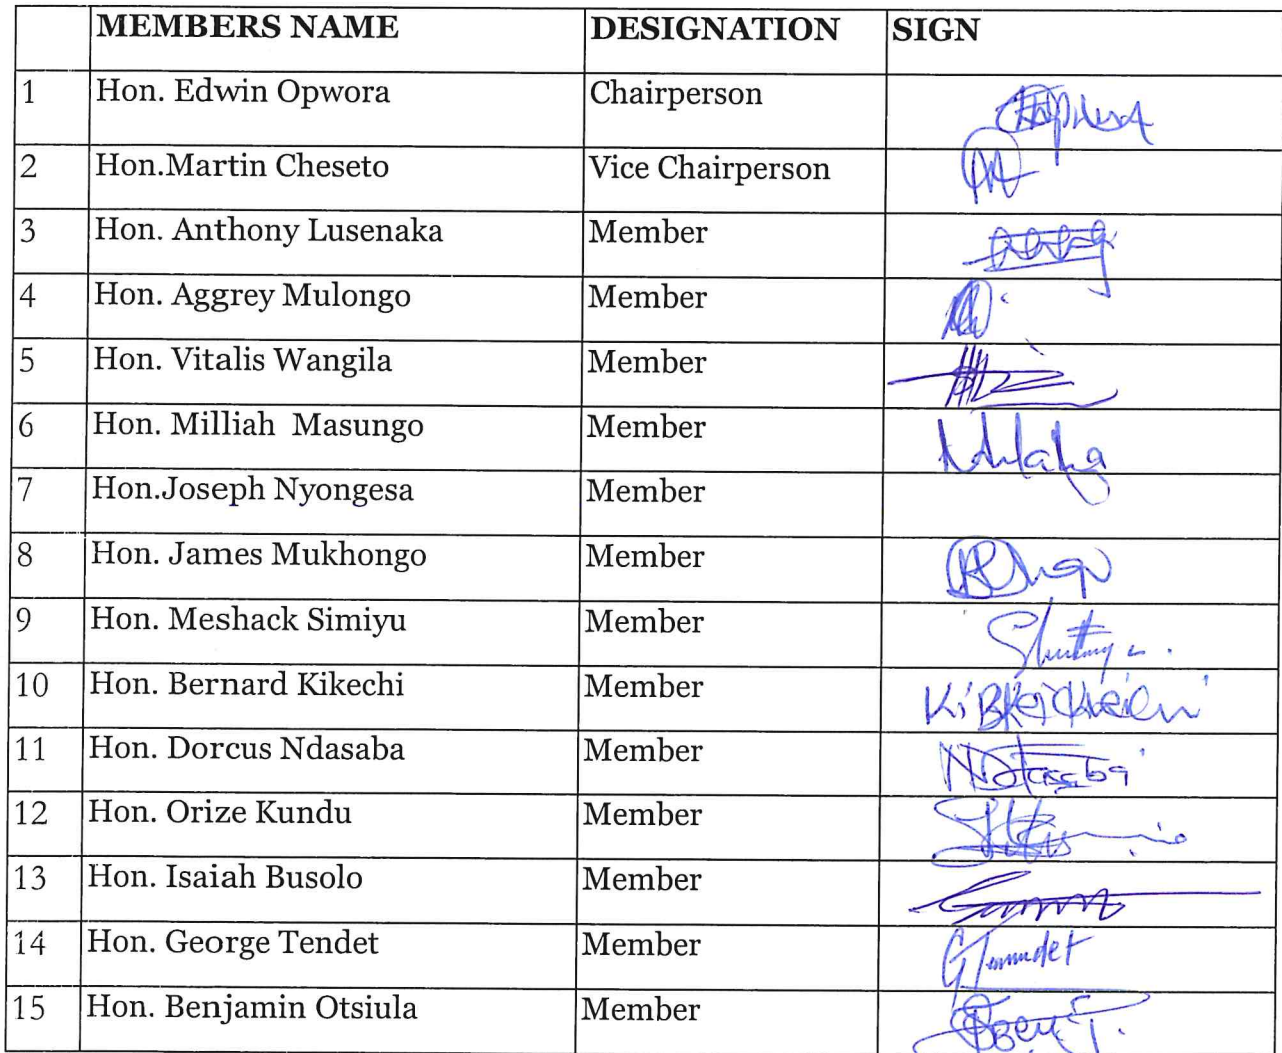 MEMBERS NAME DESIGNATION SIGN
1 Hon. Edwin Opwora Chairperson
2 Hon.Martin Cheseto Vice Chairperson
3 Hon. Anthony Lusenaka Member
4 Hon. Aggrey Mulongo Member
5 Hon. Vitalis Wangila Member
6 Hon. Milliah Masungo Member
7 Hon.Joseph Nyongesa Member
8 Hon. James Mukhongo Member
9 Hon. Meshack Simiyu Member
10 Hon. Bernard Kikechi Member
11 Hon. Dorcus Ndasaba Member
12 Hon. Orize Kundu Member
13 Hon. Isaiah Busolo Member
14 Hon. George Tendet Member
15 Hon. Benjamin Otsiula Member